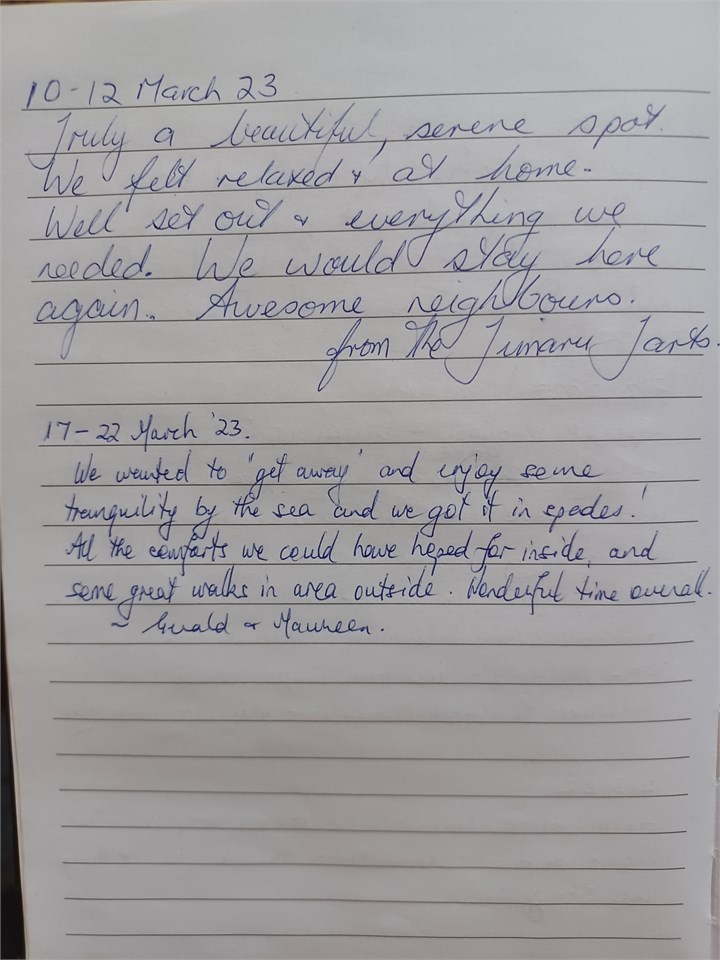 10-12 March 23
Truly a beautiful, serene spot.
We felt relaxed & at home.
Well set out & everything we
needed. We would stay here
again. Awesome neighbours.
from the Timaru
17-22 March '23.
We wanted to "get away" and enjoy some
tranquility by the sea and we got it in spades!
All the comforts we could have hoped for inside, and
some great walks in area outside. Wonderful time overall.
~ & Maureen.